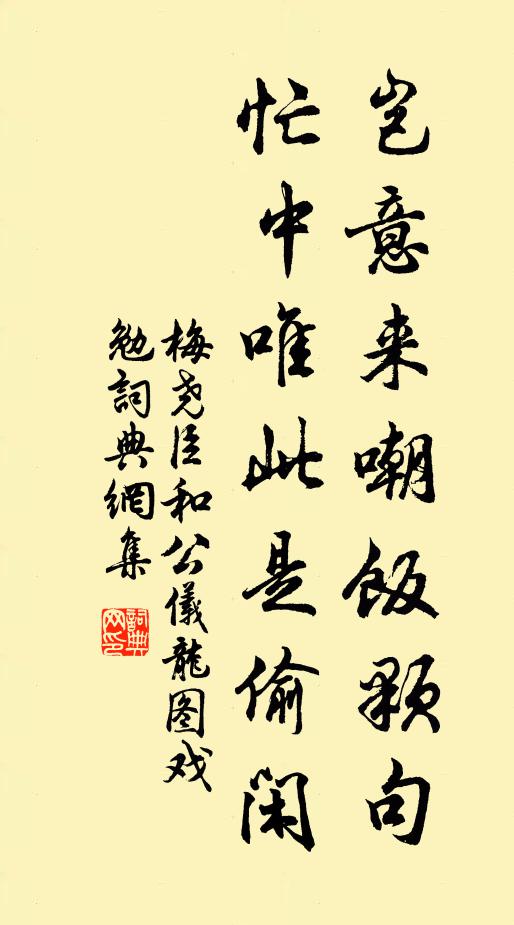 岂意来嘲饭颗句
忙中唯此是偷闲
梅尧臣和公儀龍图戏
勉詞典網集
詞典
网印